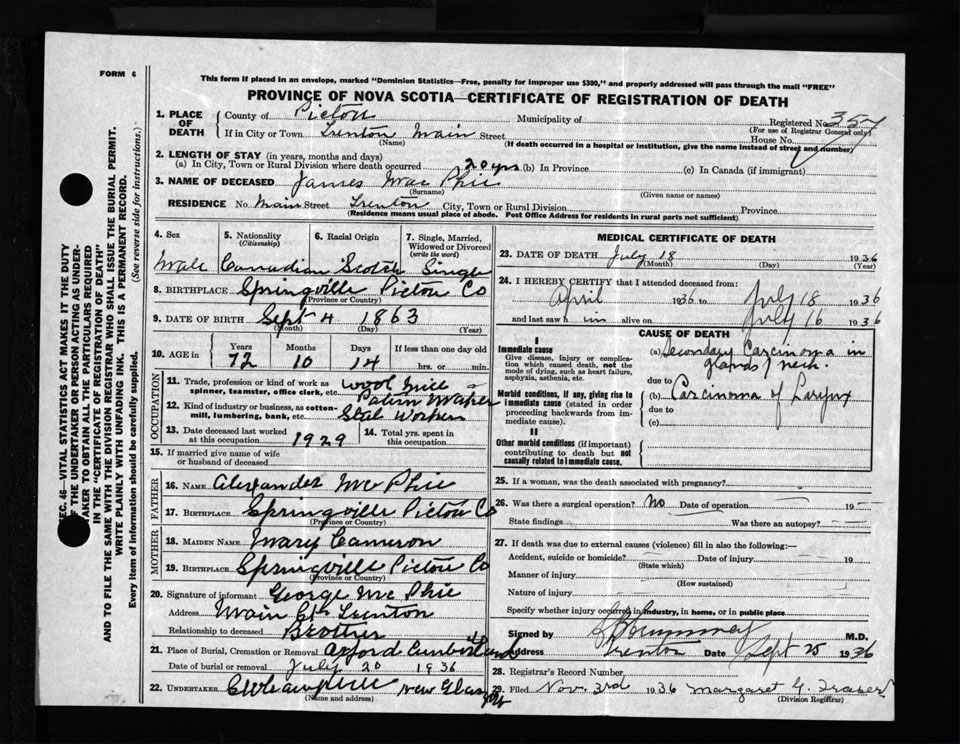 FORM 6
This form if placed in an envelope, marked "Dominion Statistics—Free, penalty for improper use $300," and properly addressed will pass through the mail "FREE"
PROVINCE OF NOVA SCOTIA—CERTIFICATE OF REGISTRATION OF DEATH
SEC. 46—VITAL STATISTICS ACT MAKES IT THE DUTY
OF THE UNDERTAKER OR PERSON ACTING AS UNDER-
TAKER TO OBTAIN ALL THE PARTICULARS REQUIRED
IN THE "CERTIFICATE OF REGISTRATION OF DEATH"
AND TO FILE THE SAME WITH THE DIVISION REGISTRAR WHO SHALL ISSUE THE BURIAL PERMIT.
WRITE PLAINLY WITH UNFADING INK. THIS IS A PERMANENT RECORD.
Every item of information should be carefully supplied.
(See reverse side for instructions.)
1. PLACE OF DEATH
County of Pictou Municipality of Registered No. 357
(For use of Registrar General only)
If in City or Town Trenton Main Street House No.
(Name) (If death occurred in a hospital or institution, give the name instead of street and number)
2. LENGTH OF STAY (in years, months and days)
(a) In City, Town or Rural Division where death occurred 20 yrs (b) In Province (c) In Canada (if immigrant)
3. NAME OF DECEASED James Mac Phie
(Surname) (Given name or names)
RESIDENCE No. Main Street Trenton City, Town or Rural Division Province
(Residence means usual place of abode. Post Office Address for residents in rural parts not sufficient)
4. Sex 5. Nationality (Citizenship) 6. Racial Origin 7. Single, Married, Widowed or Divorced (write the word)
Male Canadian Scotch Single
8. BIRTHPLACE Springville Pictou Co
(Province or Country)
9. DATE OF BIRTH Sept 4 1863
(Month) (Day) (Year)
10. AGE in Years Months Days If less than one day old
72 10 14 hrs. or min.
OCCUPATION
11. Trade, profession or kind of work as spinner, teamster, office clerk, etc.
12. Kind of industry or business, as cotton-mill, lumbering, bank, etc. Steel Worker
13. Date deceased last worked at this occupation 1929 14. Total yrs. spent in this occupation
15. If married give name of wife or husband of deceased
FATHER
16. NAME Alexander Mc Phie
17. BIRTHPLACE Springville Pictou Co
(Province or Country)
MOTHER
18. MAIDEN NAME Mary Cameron
19. BIRTHPLACE Springville Pictou Co
(Province or Country)
20. Signature of informant George Mc Phie
Address Main St Trenton
Relationship to deceased Brother
21. Place of Burial, Cremation or Removal Oxford Cumberland
Date of burial or removal July 20 1936
22. UNDERTAKER New Glasgow
(Name and address)
MEDICAL CERTIFICATE OF DEATH
23. DATE OF DEATH July 18 1936
(Month) (Day) (Year)
24. I HEREBY CERTIFY that I attended deceased from:
April 1936 to July 18 1936
and last saw him alive on July 16 1936
CAUSE OF DEATH
I
Immediate cause
Give disease, injury or complication which caused death, not the mode of dying, such as heart failure, asphyxia, asthenia, etc.
(a) Secondary Carcinoma in glands neck.
due to
Morbid conditions, if any, giving rise to immediate cause (stated in order proceeding backwards from immediate cause).
(b) Carcinoma of Larynx
due to
(c)
II
Other morbid conditions (if important) contributing to death but not causally related to immediate cause.
25. If a woman, was the death associated with pregnancy?
26. Was there a surgical operation? No Date of operation 19
State findings Was there an autopsy?
27. If death was due to external causes (violence) fill in also the following:—
Accident, suicide or homicide? Date of injury 19
(State which)
Manner of injury
(How sustained)
Nature of injury
Specify whether injury occurred in industry, in home, or in public place
Signed by M.D.
Address Trenton Date Sept 25 1936
28. Registrar's Record Number
29. Filed Nov. 3rd 1936 Margaret G. Fraser
(Division Registrar)